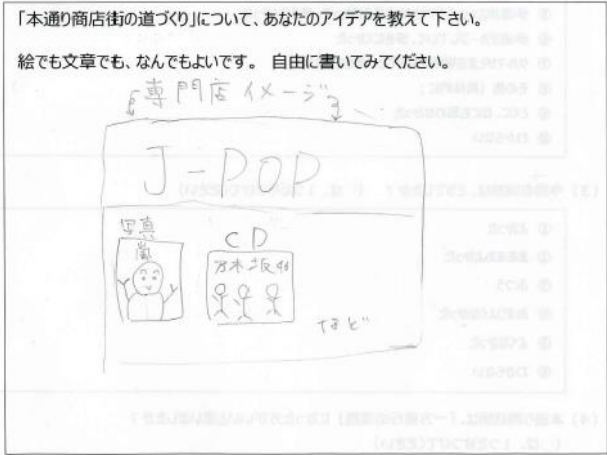 「本通り商店街の道づくり」について、あなたのアイデアを教えて下さい。
絵でも文章でも、なんでもよいです。 自由に書いてみてください。
専門店イメージ
J-POP
写真
嵐
CD
乃木坂46
など